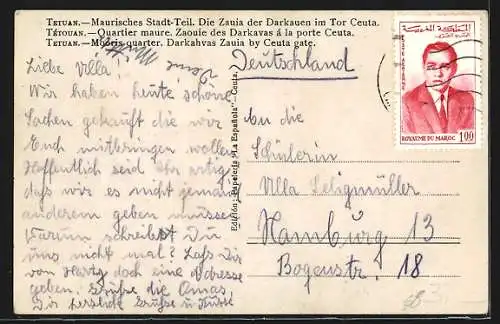 TETUAN.—Maurisches Stadt-Teil. Die Zauia der Darkauen im Tor Ceuta.
TÉTOUAN.—Quartier maure. Zaouie des Darkavas á la porte Ceuta.
TETUAN.—Mooris quarter. Darkahvas Zauia by Ceuta gate.
Liebe Ulla!
Wir haben heute schöne
Sachen gekauft die wir
Euch mitbringen wollen
Hoffentlich seid Ihr artig
daß wir es nicht jemand
anderem geben müssen
Warum schreibst Du
uns nicht mal? Laß Dir
von doch eine Adresse
geben. Grüße die Omas,
Dir herzliche Grüße u.
Edición: Papelería "La Española".—Ceuta.
Deutschland
An die
Schülerin
Ulla Seligmüller
Hamburg 13
Bogenstr. 18
المملكة المغربية
ROYAUME DU MAROC
1,00